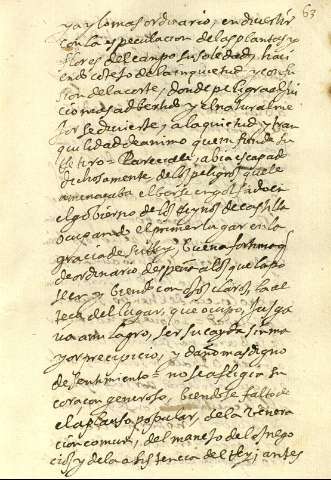 63
ya y lo mas ordinario, en divertir
con la speculacion de las plantas y
flores del campo su soledad, haci
endo cotejo de la inquietud y confu
sion de la corte, donde peligra el jui
cio mas advertido y el natural me
jor se divierte, a la quietud y tran
quilidad de animo que infunde su
Retiro = Pareciale, avia escapado
dichosamente de los peligros que le
amenaçaba el berse engolfado en
el gobierno de los Reynos de castilla
ocupando el primer lugar en la
gracia de su Rey, buena fortuna q
de ordinario despeña a los que la po
seen y biendo con ojos claros, la al
teça del lugar, que ocupo, juzga
va a milagro, ser su cayda sin ma
yor precipicio, y daño mas digno
de sentimiento = no se afligio su
coraçon generoso, biendose falto de
el aplauso popular, de la venera
cion comun, del manejo de los nego
cios y de la asistencia del Rey; antes